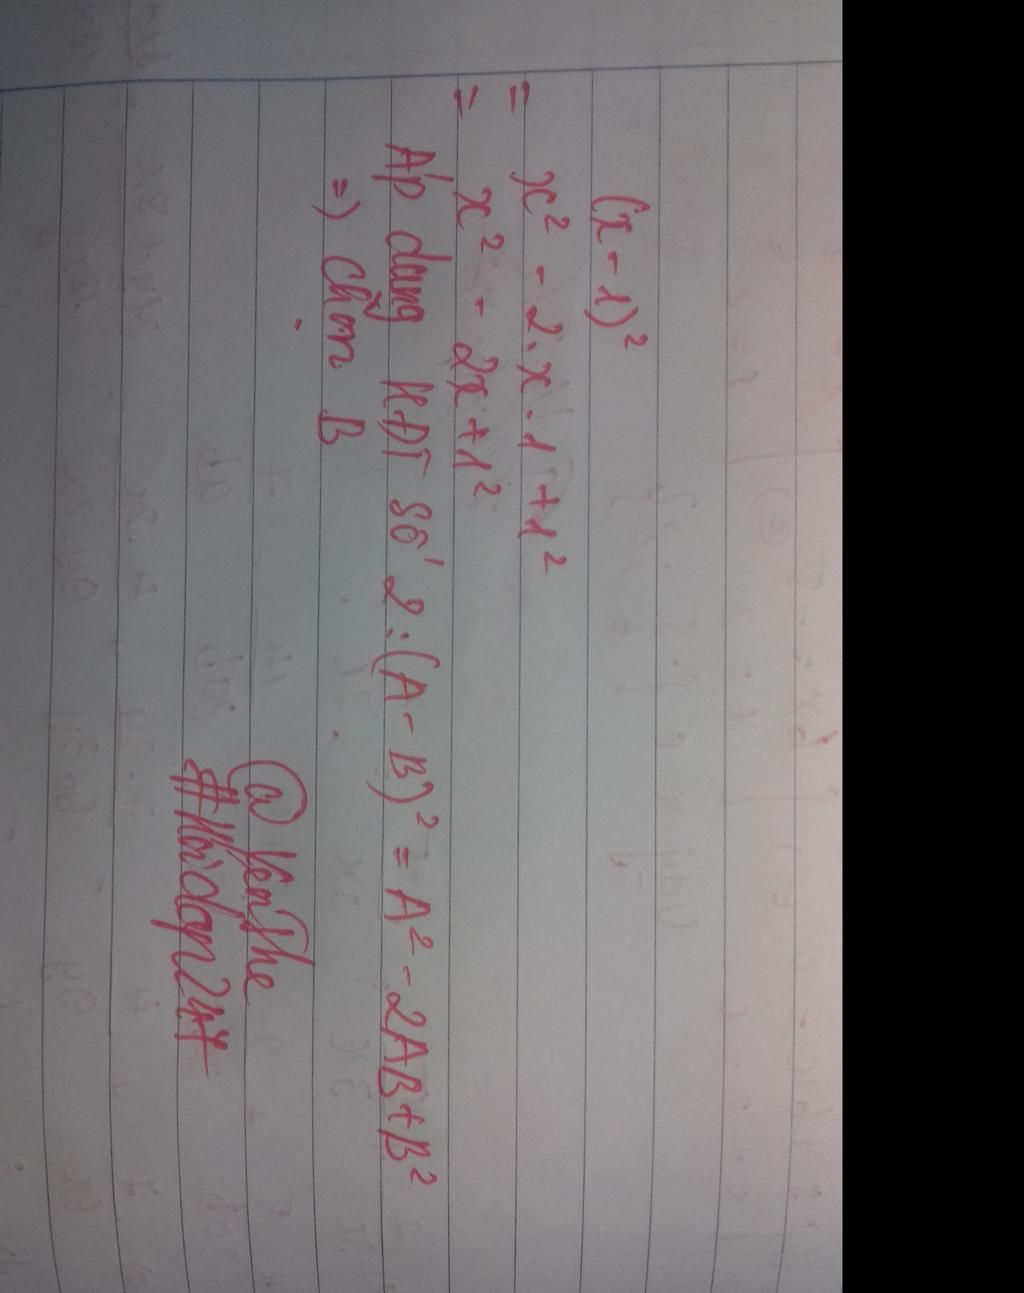 (x - 1)²
= x² - 2.x.1 + 1²
= x² - 2x + 1²
Áp dạng HĐT số 2 : (A - B)² = A² - 2AB + B²
=) Chọn B
@YenThe
#Hoidap247